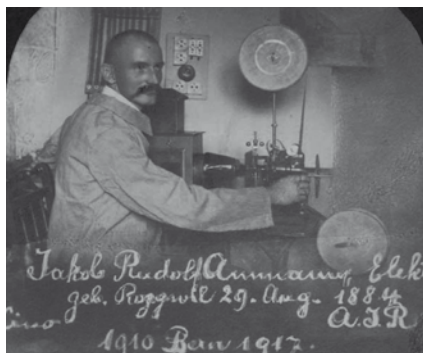 Jakob Rudolf Ammann, Elek
geb. Roggwil 29. Aug. 1884
Kino A.J.R
1910 Bern 1917.